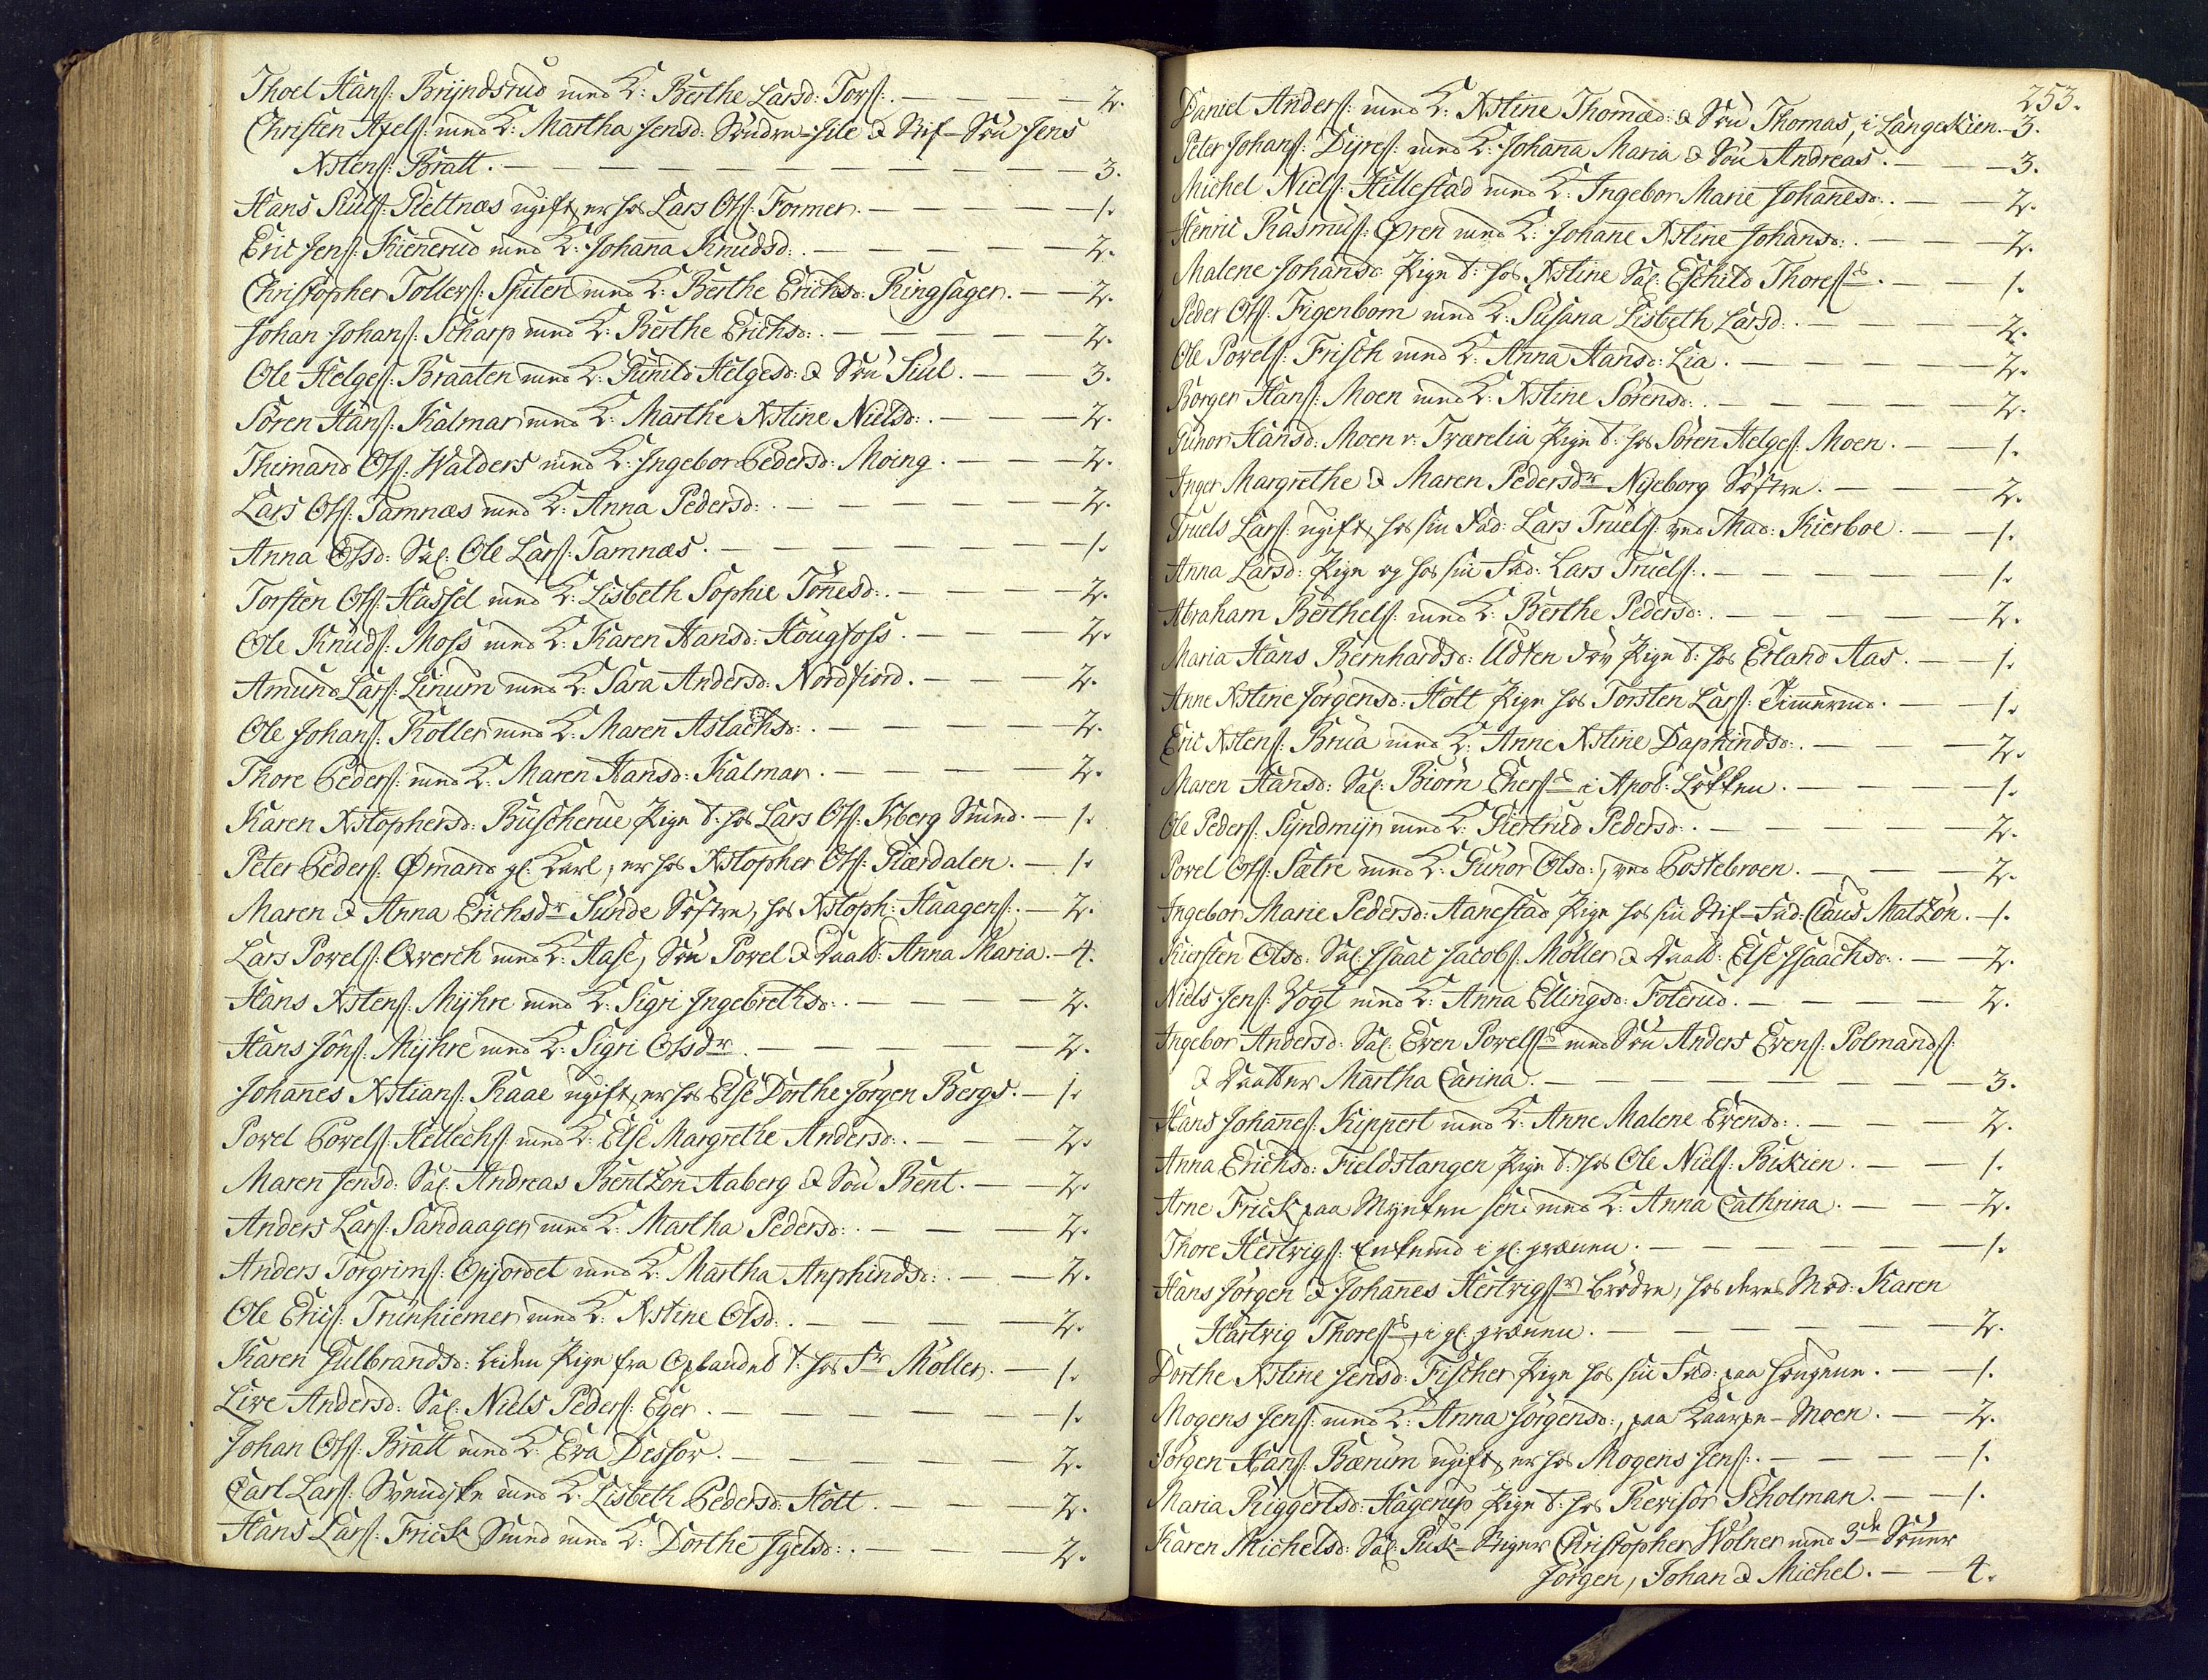 Thoel Hans: Bryndsrud med K: Berthe Larsd: Tors: — — — — 2.
Christen Axels: med K: Martha Jensd: Søndre-Jile & Stif-Søn Jens
Xstens: Bratt. — — — — — — — — 3.
Hans Siuls: Slettnæs ugift, er hos Lars Ols: Former. — — — — 1.
Eric Jens: Kienerud med K: Johanna Knudsd: — — — — 2.
Christopher Tollers: Spiten med K: Berthe Erichsd: Ringsager. — — 2.
Johan Johans: Scharp med K: Berthe Erichsd: — — — — 2.
Ole Helges: Braaten med K: Gunild Helgesd: & Søn Siul. — — 3.
Søren Hans: Kalmar med K: Marthe Xstine Nielsd: — — — 2.
Themand Ols: Walders med K: Ingebor Pedersd: Moing. — — — 2.
Lars Ols: Tamnæs med K: Anna Pedersd: — — — — 2.
Anna Olsd: Sal: Ole Lars: Tamnæs. — — — — — 1.
Torsten Ols: Hassel med K: Lisbeth Sophie Tønesd: — — — 2.
Ole Knuds: Moss med K: Karen Hansd: Hougfoss. — — — 2.
Amund Lars: Linum med K: Sara Andersd: Nordfiord. — — — 2.
Ole Johans: Koller med K: Maren Aslachsd: — — — — 2.
Thore Peders: med K: Maren Hansd: Kalmar. — — — — 2.
Karen Xstophersd: Buscherue Pige t: hos Lars Ols: Kberg Smed. — 1.
Peter Peders: Ømand gl: Karl, er hos Xstopher Ols: Giærdalen. — 1.
Maren & Anna Erichsdr Sunde Søstre, hos Xstoph: Haagens: — 2.
Lars Povels: Qverch med K: Aase, Søn Povel & Daatt: Anna Maria. — 4.
Hans Xstens: Myhre med K: Sigri Ingebrethsd: — — — 2.
Hans Jøns: Myhre med K: Sigri Olsdr. — — — — — 2.
Johanes Xstians: Raae ugift, er hos Else Dorthe Jørgen Bergs. — 1.
Povel Povels: Hellechs: med K: Else Margrethe Andersd: — — 2.
Maren Jensd: Sal: Andreas Bentzøn Aaberg & Søn Bent. — — 2.
Anders Lars: Sandaager med K: Martha Pedersd: — — — 2.
Anders Torgrims: Opjordet med K: Martha Anphindsd: — — 2.
Ole Erics: Trunhiemer med K: Xstine Olsd: — — — — 2.
Karen Gulbrandsd: liden Pige fra Oplandet t: hos Sr Møller. — 1.
Live Andersd: Sal: Niels Peders: Eger. — — — — — 1.
Johan Ols: Bratt med K: Eva Dessor. — — — — — 2.
Carl Lars: Svendske med K: Lisbeth Pedersd: Holt. — — — 2.
Hans Lars: Frick Smed med K: Dorthe Igelsd: — — — 2.
253.
Daniel Anders: med K: Xstine Thomæd: & Søn Thomas, i Langeskien. — 3.
Peter Johans: Dyres: med K: Johana Maria & Søn Andreas. — — 3.
Michel Niels: Hillestad med K: Ingebor Marie Johanesd: — — 2.
Henric Rasmus: Øren med K: Johane Xstine Johansd: — — — 2.
Malene Johansd: Pige t: hos Xstine Sal: Eschild Thoress. — — 1.
Peder Ols: Figenbom med K: Susana Lisbeth Larsd: — — — 2.
Ole Povels: Frisch med K: Anna Hansd: Lia. — — — — 2.
Børger Hans: Moen med K: Xstine Sørensd: — — — — 2.
Gunor Hansd: Moen v: Tværelia Pige t: hos Søren Helges: Moen. — 1.
Inger Margrethe & Maren Pedersdr Nyeborg Søstre. — — — 2.
Truels Lars: ugift, hos sin Fad: Lars Truels: ved Mad: Kierboe. — 1.
Anna Larsd: Pige og hos sin Fad: Lars Truels: — — — — 1.
Abraham Berthels: med K: Berthe Pedersd: — — — — 2.
Maria Hans Bernhardsd: Udten døv Pige t: hos Erland Aas. — 1.
Anne Xstine Jørgensd: Holt Pige hos Torsten Lars: Timmermd. — 1.
Eric Xstens: Brua med K: Anne Xstine Daphindsd: — — — 2.
Maren Hansd: Sal: Biørn Eners i Apot: Løkken. — — — — 1.
Ole Peders: Syndmyr med K: Giertrud Pedersd: — — — — 2.
Povel Ols: Sætre med K: Gunor Olsd:, ved Postebroen. — — — 2.
Ingebor Marie Pedersd: Aanestad Pige hos sin Stif-Fad: Claus Matzøn. — 1.
Kiersten Olsd: Sal: Isaac Jacobs: Møller & Daatt: Else Isaachsd: — 2.
Niels Jens: Vogt med K: Anna Ellingsd: Foterud. — — — — 2.
Ingebor Andersd: Sal: Even Povels med Søn Anders Evens: Polmands:
& Daatter Martha Carina. — — — — — — — — 3.
Hans Johanes: Kippert med K: Anne Malene Evensd: — — — 2.
Anna Erichsd: Fieldstangen Pige t: hos Ole Niels: Biskien. — — 1.
Arne Frick paa Mynten sen: med K: Anna Cathrina. — — 2.
Thore Hertvigs: Enkemd i gl: grænnen. — — — — — 1.
Hans Jørgen & Johannes Hertvigs Brødre, hos deres Mod: Karen
Hartvig Thoress, i gl: grænnen. — — — — — — 2.
Dorthe Xstine Jensd: Fischer Pige hos sin Fad: paa Hougene. — — 1.
Mogens Jens: med K: Anna Jørgensd:, paa Kaarpe-Moen. — — 2.
Jørgen Hans: Bærum ugift, er hos Mogens Jens: — — — — 1.
Maria Riggertsd: Hagerup Pige t: hos Revisor Scholman. — — 1.
Karen Michelsd: Sal: Puk-Stiger Christopher Wolner med 3de Sønner
Jørgen, Johan & Michel. — — 4.